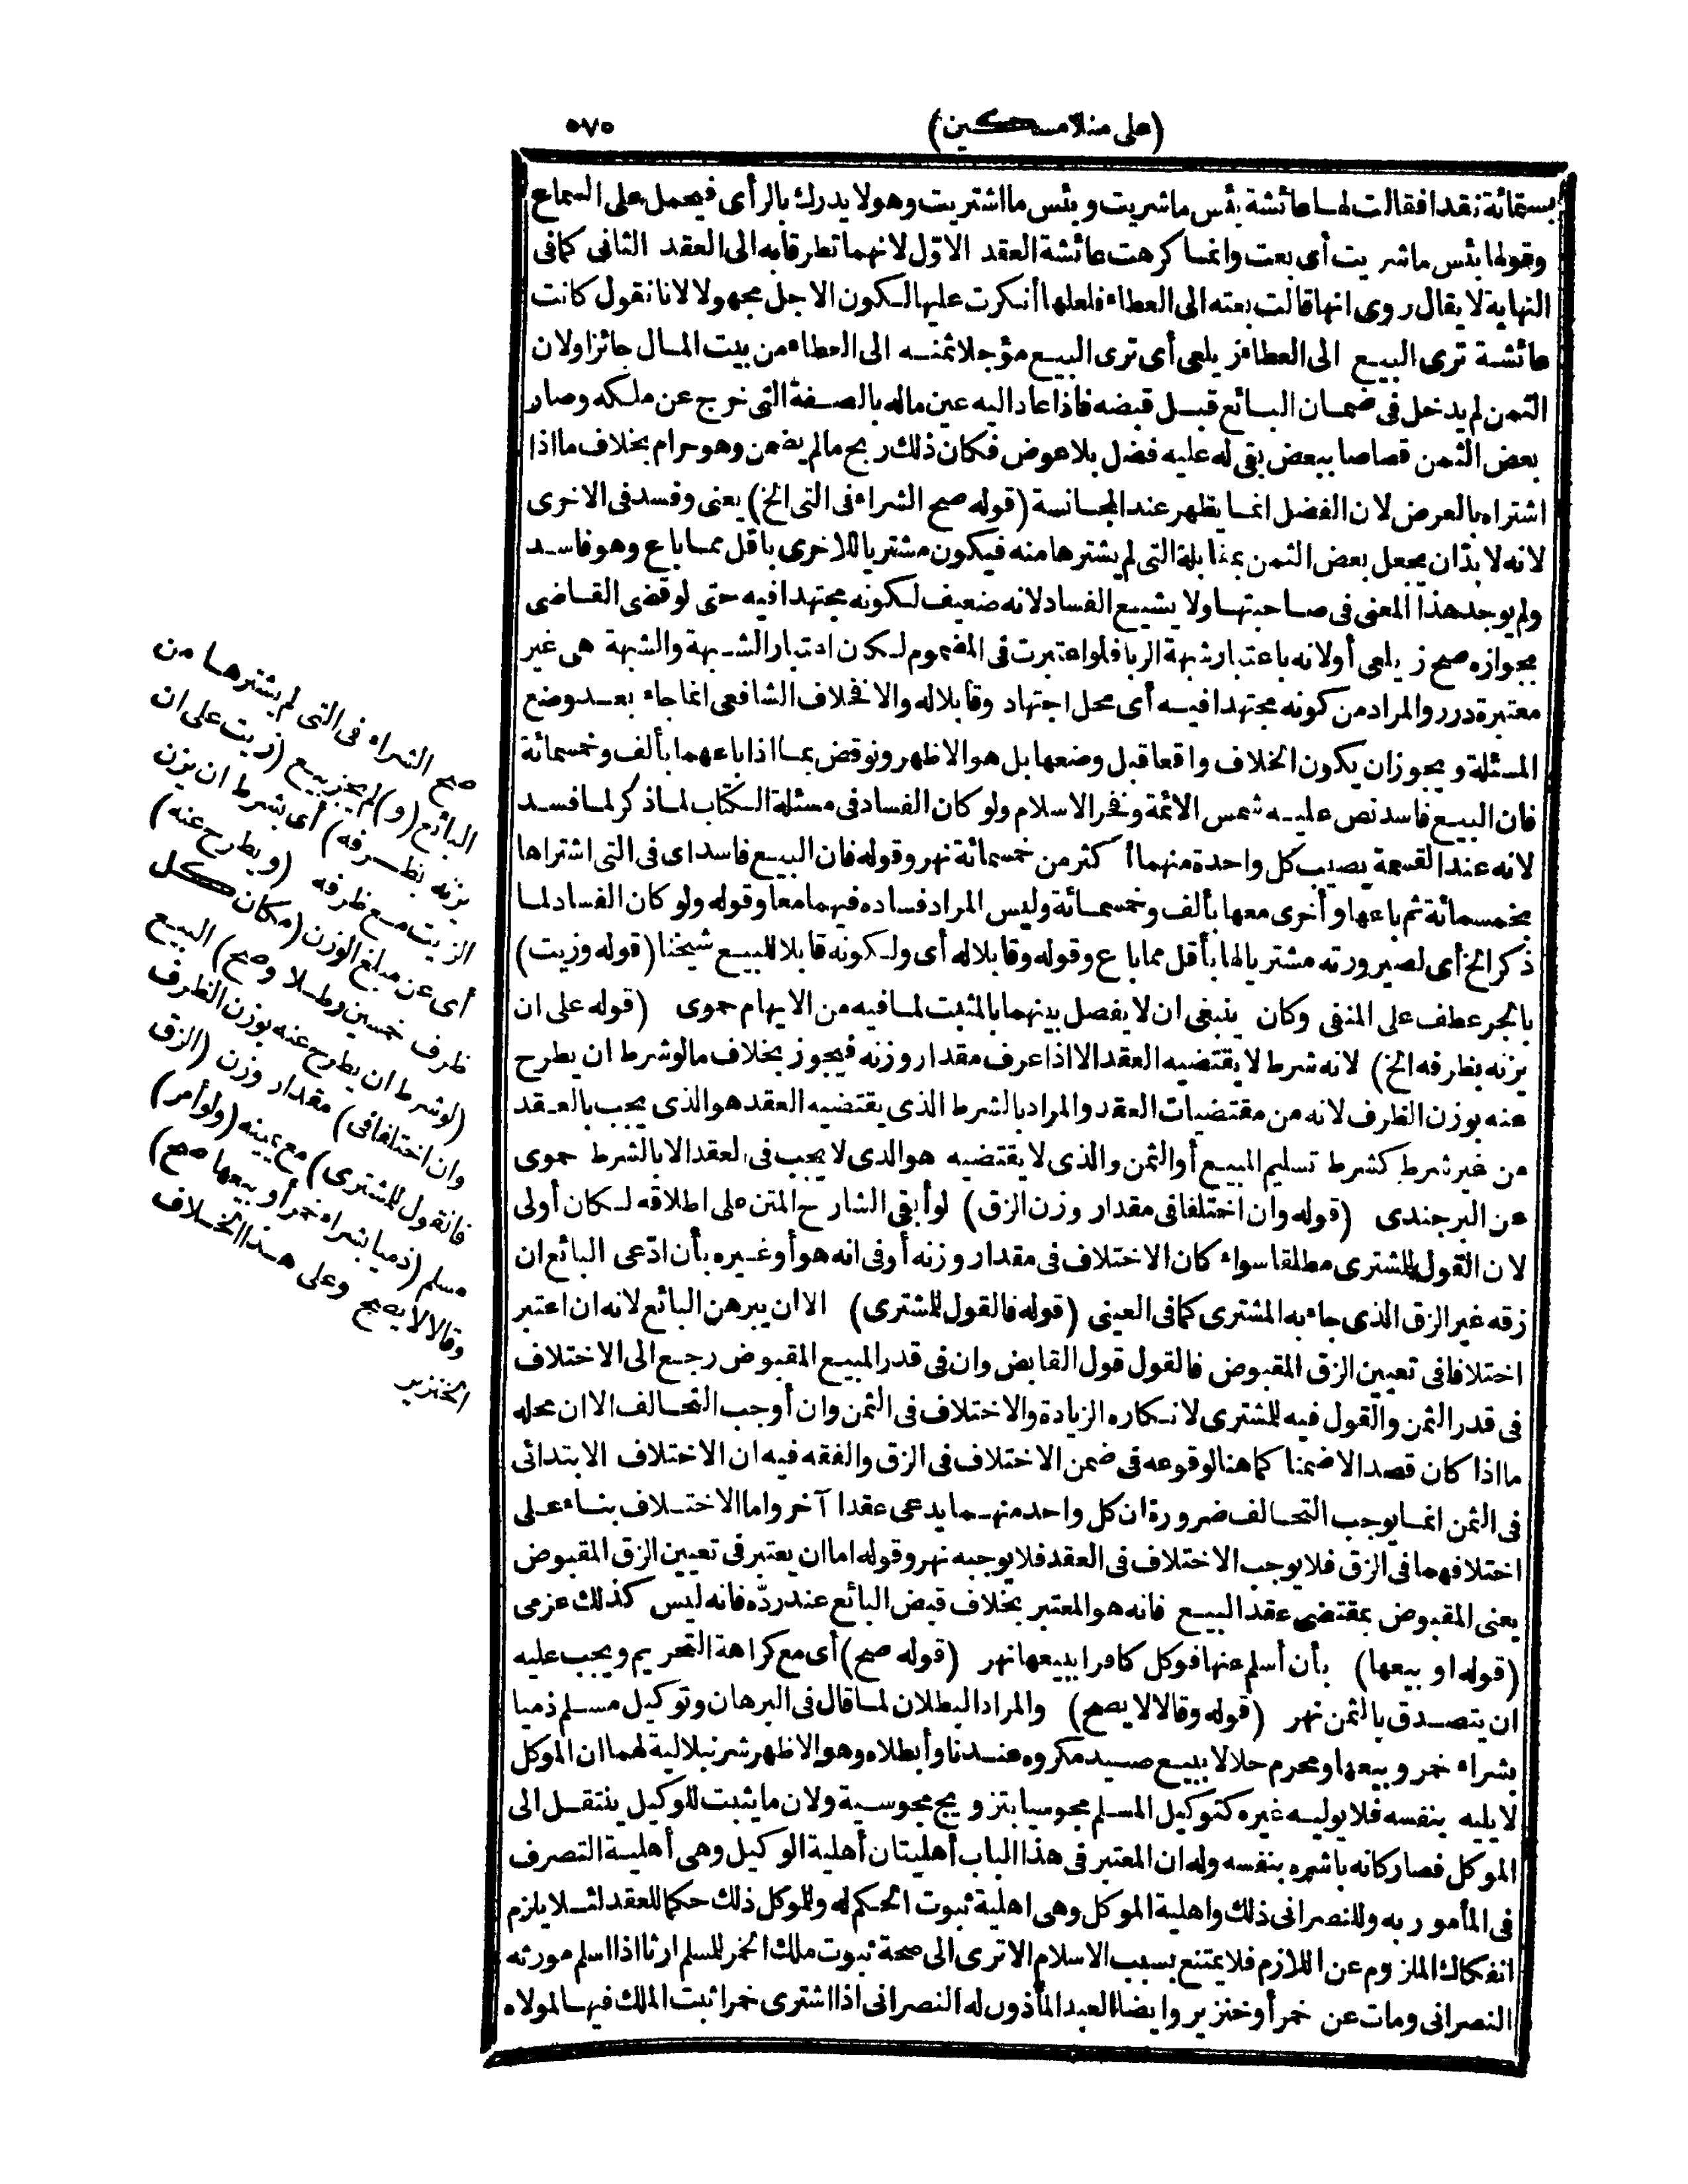 (على منلا مسكين) ٥٧٥
بستمائة نقدا فقالت لها عائشة بئس ما شريت وبئس ما اشتريت وهو لا يدرك بالرأى فيحمل على السماع
وقولها بئس ما شريت أى بعت وانما كرهت عائشة العقد الاوّل لانهما تطرقا به الى العقد الثانى كما فى
النهاية لا يقال روى انها قالت بعته الى العطاء فلعلها أنكرت عليها لكون الاجل مجهولا لانا نقول كانت
عائشة ترى البيع الى العطاء زيلعى أى ترى البيع مؤجلا ثمنه الى العطاء من بيت المال جائزا ولان
الثمن لم يدخل فى ضمان البائع قبل قبضه فاذا عاد اليه عين ماله بالصفة التى خرج عن ملكه وصار
بعض الثمن قصاصا ببعض بقى له عليه فضل بلا عوض فكان ذلك ربح مالم يضمن وهو حرام بخلاف ما اذا
اشتراه بالعرض لان الفضل انما يظهر عند المجانسة (قوله صح الشراء فى التى الخ) يعنى وفسد فى الاخرى
لانه لا بدّ ان يجعل بعض الثمن بمقابلة التى لم يشترها منه فيكون مشتريا للاخرى باقل مما باع وهو فاسد
ولم يوجد هذا المعنى فى صاحبتها ولا يشيع الفساد لانه ضعيف لكونه مجتهدا فيه حتى لو قضى القاضى
بجوازه صح زيلعى أولانه باعتبار شبهة الربا فلو اعتبرت فى المضموم لكان اعتبار الشبهة والشبهة هى غير
معتبرة درر والمراد من كونه مجتهدا فيه أى محل اجتهاد وقابلا له والا فخلاف الشافعى انما جاء بعد وضع
المسئلة ويجوز ان يكون الخلاف واقعا قبل وضعها بل هو الاظهر ونوقض بما اذا باعهما بألف وخمسمائة
فان البيع فاسد نص عليه شمس الائمة وفخر الاسلام ولو كان الفساد فى مسئلة الكتاب لما ذكر لما فسد
لانه عند القسمة يصيب كل واحدة منهما أكثر من خمسمائة نهر وقوله فان البيع فاسد اى فى التى اشتراها
بخمسمائة ثم باعها وأخرى معها بألف وخمسمائة وليس المراد فساده فيهما معا وقوله ولو كان الفساد لما
ذكر الخ أى لصيرورته مشتريا لها بأقل مما باع وقوله وقابلا له أى ولكونه قابلا للبيع شيخنا (قوله وزيت)
بالجر عطف على المنفى وكان ينبغى ان لا يفصل بينهما بالمثبت لما فيه من الايهام حموى (قوله على ان
يزنه بظرفه الخ) لانه شرط لا يقتضيه العقد الا اذا عرف مقدار وزنه فيجوز بخلاف مالو شرط ان يطرح
عنه بوزن الظرف لانه من مقتضيات العقد والمراد بالشرط الذى يقتضيه العقد هو الذى يجب بالعقد
من غير شرط كشرط تسليم المبيع أو الثمن والذى لا يقتضيه هو الذى لا يجب فى العقد الا بالشرط حموى
عن البرجندى (قوله وان اختلفا فى مقدار وزن الزق) لو أبقى الشارح المتن على اطلاقه لكان أولى
لان القول للمشترى مطلقا سواء كان الاختلاف فى مقدار وزنه أو فى انه هو أو غيره بأن ادّعى البائع ان
زقه غير الزق الذى جاء به المشترى كما فى العينى (قوله فالقول للمشترى) الا ان يبرهن البائع لانه ان اعتبر
اختلافا فى تعيين الزق المقبوض فالقول قول القابض وان فى قدر المبيع المقبوض رجع الى الاختلاف
فى قدر الثمن والقول فيه للمشترى لانكاره الزيادة والاختلاف فى الثمن وان أوجب التحالف الا ان محله
ما اذا كان قصدا لا ضمنا كما هنا لوقوعه فى ضمن الاختلاف فى الزق والفقه فيه ان الاختلاف الابتدائى
فى الثمن انما يوجب التحالف ضرورة ان كل واحد منهما يدعى عقدا آخر واما الاختلاف بناء على
اختلافهما فى الزق فلا يوجب الاختلاف فى العقد فلا يوجبه نهر وقوله اما ان يعتبر فى تعيين الزق المقبوض
يعنى المقبوض بمقتضى عقد البيع فانه هو المعتبر بخلاف قبض البائع عند ردّه فانه ليس كذلك عزمى
(قوله او بيعها) بأن أسلم عنها فوكل كافرا ببيعها نهر (قوله صح) أى مع كراهة التحريم ويجب عليه
ان يتصدق بالثمن نهر (قوله وقالا لا يصح) والمراد البطلان لما قال فى البرهان وتوكيل مسلم ذميا
بشراء خمر وبيعها ومحرم حلالا ببيع صيد مكروه عندنا وأبطلاه وهو الاظهر شرنبلالية لهما ان الموكل
لا يليه بنفسه فلا يوليه غيره كتوكيل المسلم مجوسيا بتزويج مجوسية ولان ما يثبت للوكيل ينتقل الى
الموكل فصار كانه باشره بنفسه وله ان المعتبر فى هذا الباب أهليتان أهلية الوكيل وهى أهلية التصرف
فى المأمور به وللنصرانى ذلك واهلية الموكل وهى اهلية ثبوت الحكم له وللموكل ذلك حكما للعقد لئلا يلزم
انفكاك الملزوم عن اللازم فلا يمتنع بسبب الاسلام الا ترى الى صحة ثبوت ملك الخمر للمسلم ارثا اذا اسلم مورثه
النصرانى ومات عن خمر أو خنزير وايضا العبد المأذون له النصرانى اذا اشترى خمرا ثبت الملك فيها لمولاه
صح الشراء فى التى لم يشترها من
البائع (و) لم يجز بيع (زيت على ان
يزنه بظرفه) أى بشرط ان يزن
الزيت مع ظرفه (ويطرح عنه)
أى عن مبلغ الوزن (مكان كل
ظرف خمسين رطلا وصح) البيع
(لو شرط ان يطرح عنه بوزن الظرف
وان اختلفا فى) مقدار وزن (الزق
فالقول للمشترى) مع يمينه (ولو أمر)
مسلم (ذميا بشراء خمر أو بيعها صح)
وقالا لا يصح وعلى هذا الخلاف
الخنزير